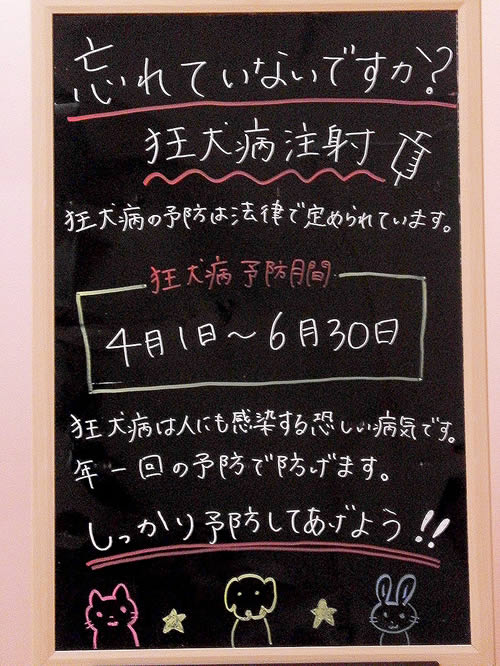 忘れていないですか?
狂犬病注射
狂犬病の予防は法律で定められています。
狂犬病予防月間
4月1日～6月30日
狂犬病は人にも感染する恐しい病気です。
年一回の予防で防げます。
しっかり予防してあげよう!!